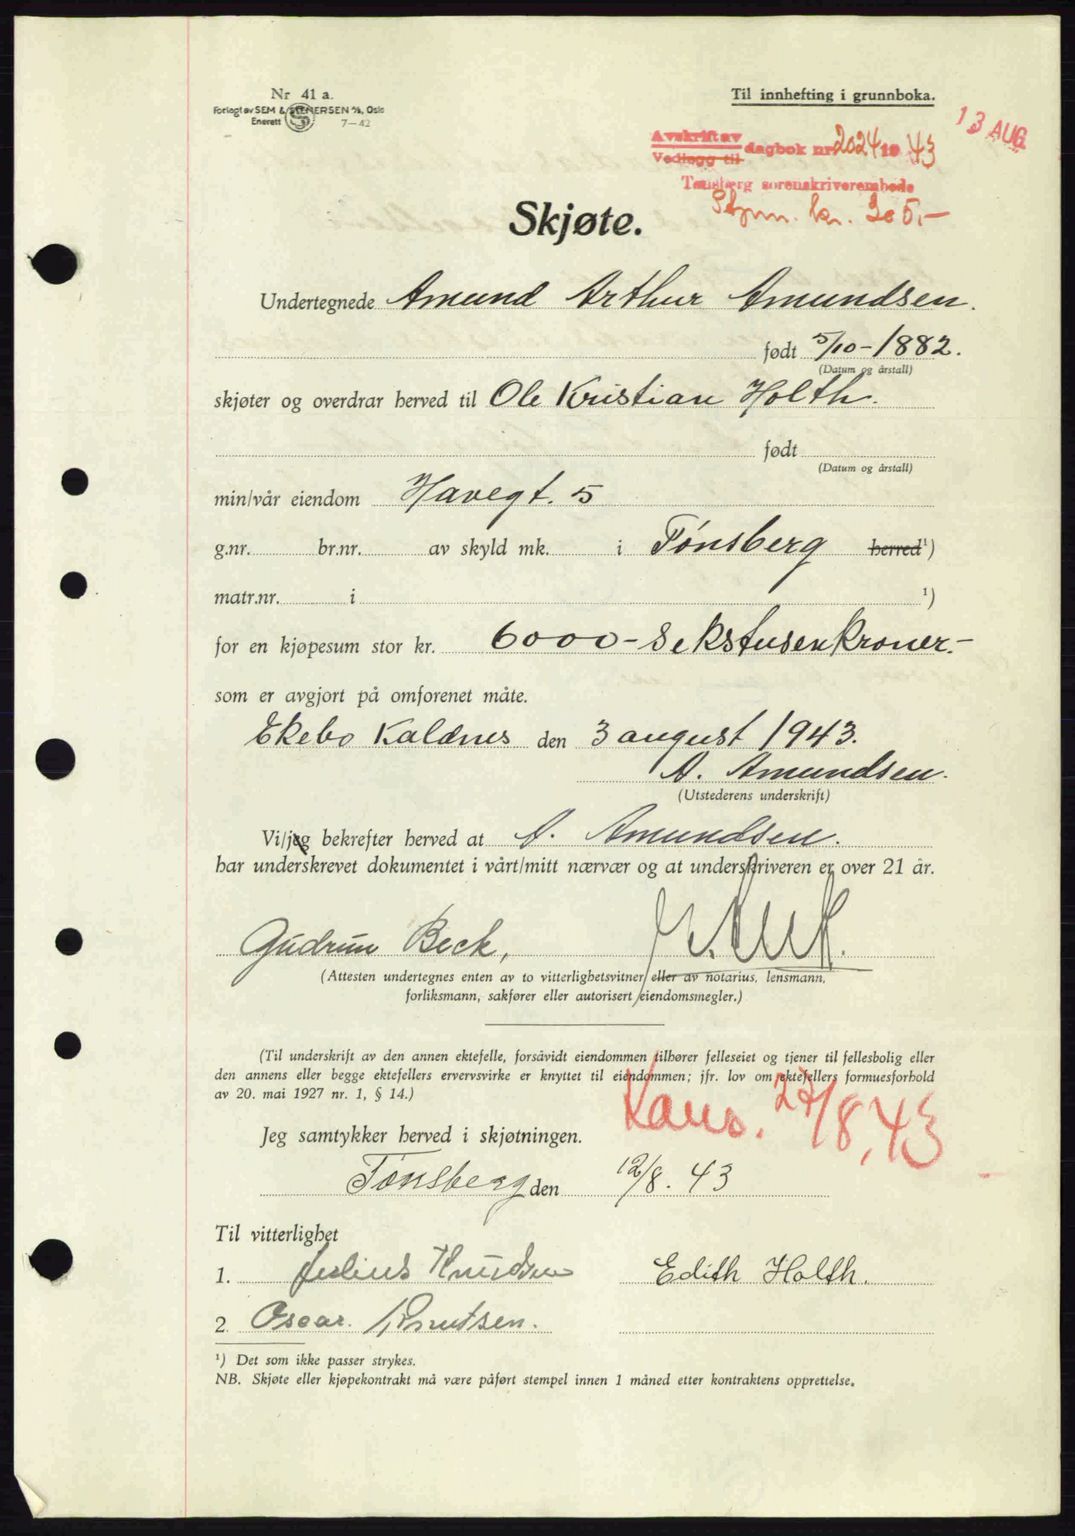 Nr 41 a.
Forlagt av SEM & STENERSEN A/S, Oslo
Enerett 7–42
Til innhefting i grunnboka.
13 AUG
Avskrift av
Vedlegg til dagbok nr 2024 19 43
Tønsberg sorenskriverembede
Stpm. kr. 205,–
Skjøte.
Undertegnede Amund Arthur Amundsen.
født 5/10–1882.
(Datum og årstall)
skjøter og overdrar herved til Ole Kristian Holth.
født
(Datum og årstall)
min/vår eiendom Havegt. 5
g.nr. br.nr. av skyld mk. i Tønsberg herred¹)
matr.nr. i ¹)
for en kjøpesum stor kr. 6000 – Sekstusenkroner.–
som er avgjort på omforenet måte.
Ekebo Kaldnes den 3 august 1943.
A. Amundsen.
(Utstederens underskrift)
Vi/jeg bekrefter herved at A. Amundsen.
har underskrevet dokumentet i vårt/mitt nærvær og at underskriveren er over 21 år.
Gudrun Beck,
(Attesten undertegnes enten av to vitterlighetsvitner eller av notarius, lensmann,
forliksmann, sakfører eller autorisert eiendomsmegler.)
(Til underskrift av den annen ektefelle, forsåvidt eiendommen tilhører felleseiet og tjener til fellesbolig eller
den annens eller begge ektefellers ervervsvirke er knyttet til eiendommen; jfr. lov om ektefellers formuesforhold
av 20. mai 1927 nr. 1, § 14.)
Kans. 27/8.43
Jeg samtykker herved i skjøtningen.
Tønsberg den 12/8. 43
Til vitterlighet
1. Julius Knudsen Edith Holth.
2. Oscar Knutsen.
¹) Det som ikke passer strykes.
NB. Skjøte eller kjøpekontrakt må være påført stempel innen 1 måned etter kontraktens opprettelse.